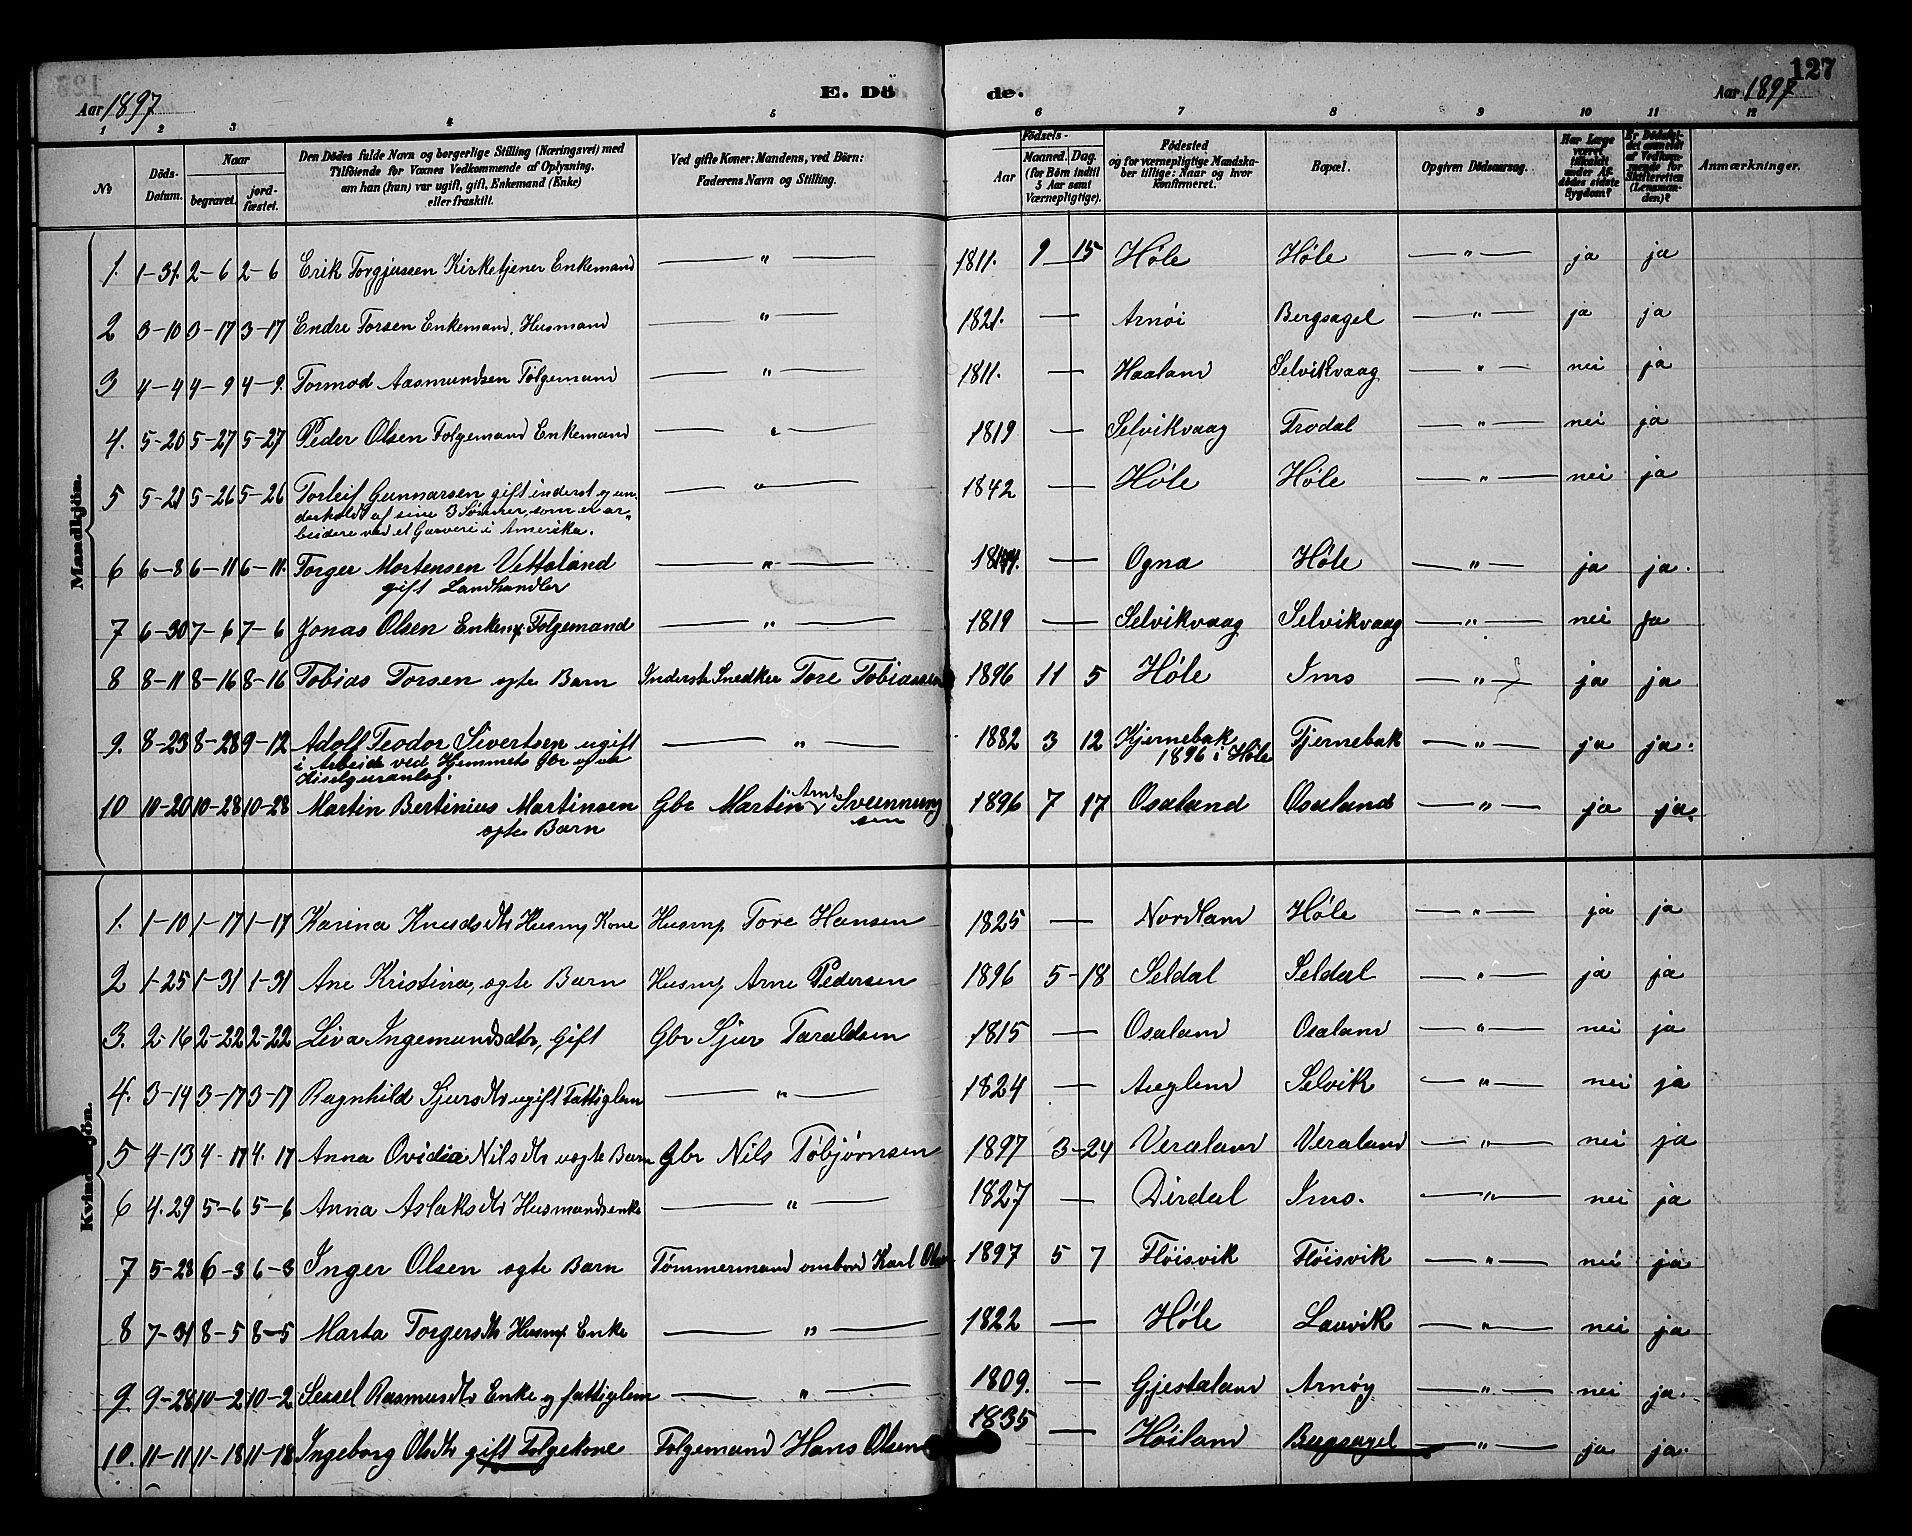 Aar 1897 E. Dö de. Aar 1897 127
1 2 3 4 5 6 7 8 9 10 11 12
No
Döds-Datum.
Naar
begravet.
jord-fæstet.
Den Dödes fulde Navn og borgerlige Stilling (Næringsvei) med
Tilföiende for Voxnes Vedkommende af Oplysning,
om han (hun) var ugift, gift, Enkemand (Enke)
eller fraskilt.
Ved gifte Koner: Mandens, ved Börn:
Faderens Navn og Stilling.
Födsels-
Aar
Maaned. Dag.
(for Börn indtil
5 Aar samt
Værnepligtige).
Födested
og for værnepligtige Mandska-
ber tillige: Naar og hvor
konfirmeret.
Bopæl.
Opgiven Dödsaarsag.
Har Læge
været
tilkaldt
under Af-
dödes sidste
Sygdom?
Er Dödsfal-
det anmeldt
af Vedkom-
mende for
Skifteretten
(Lensman-
den)?
Anmærkninger.
Mandkjön.
1. 1-31. 2-6 2-6 Erik Torgjussen Kirketjener Enkemand — " — 1811. 9 — 15 Høle Høle — " — ja ja
2 3-10 3-17 3-17 Endre Torsen Enkemand. Husmand — " — 1821. — Arnøi Bergsagel — " — ja ja
3 4-4 4-9 4-9. Tormod Aasmundsen Følgemand — " — 1811. — Haaland Selvikvaag — " — nei ja
4. 5-20 5-27 5-27 Peder Olsen Følgemand Enkemand — " — 1819 — Selvikvaag Frodal — " — nei ja
5 5-21 5-26 5-26 Torleif Gunnarsen gift inderst og un-
derholdt af sine 3 Sønner, som er ar-
beidere ved et Garveri i Amerika. — " — 1842 — Høle Høle — " — nei ja
6 6-8 6-11 6-11. Torger Mortensen Vettaland
gift Landhandler — " — — Ogna Høle — " — ja ja.
7 6-30 7-6 7-6 Jonas Olsen Enkem. Følgemand — " — 1819 — Selvikvaag Selvikvaag — " — nei ja
8 8-11 8-16 8-16 Tobias Torsen ægte Barn Inderst Snedker Tore Tobiassen 1896 11 5 Høle Ims — " — ja ja
9. 8-23 8-28 9-12 Adolf Teodor Sivertsen ugift
i Arbeide ved Hjemmets Gbr og
Kiselguranlæg. — " — 1882 3 12 Kjernebak
1896 i Høle Tjernebak — " — ja ja.
10 10-20 10-28 10-28 Martin Bertinius Martinsen
ægte Barn Gbr Martin Arnt Sveinnung
sen 1896 7 17 Osaland Osaland — " — ja ja.
Kvindekjön.
1. 1-10 1-17 1-17 Karina Knudsdtr Husm. Kone Husm. Tore Hansen 1825 — Nordland Høle — " — ja ja
2 1-25 1-31 1-31 Ane Kristina, ægte Barn Husm. Arne Pedersen 1896 5-18 Seldal Seldal — " — ja ja
3. 2-16 2-22 2-22 Liva Ingemundsdtr, Gift Gbr Sjur Taraldsen 1815 — Osaland Osaland — " — nei ja
4. 3-14 3-17 3-17 Ragnhild Sjursdtr ugift Fattiglem — " — 1824 — Auglend Selvik — " — nei ja
5 4-13 4-17 4-17 Anna Ovidia Nilsdtr uægte Barn Gbr Nils Tøbjørnsen 1897 3-24 Veraland Veraland — " — nei ja
6 4-29 5-6 5-6 Anna Aslaksdtr Husmandsenke — " — 1827 — Dirdal Ims. — " — nei ja
7 5-28 6-3 6-3 Inger Olsen ægte Barn Tømmermand ombord Karl Olsen 1897 5 7 Fløisvik Fløisvik — " — nei ja
8 7-31 8-5 8-5 Marta Torgersdtr Husm. Enke — " — 1822 — Høle Lauvik — " — nei ja
9. 9-28 10-2 10-2 Sessel Rasmusdtr Enke og fattiglem — " — 1809. — Gjestaland Arnøy — " — nei ja.
10. 11-11 11-18 11-18 Ingeborg Olsdtr gift Følgekone Følgemand Hans Olsen 1835 — Høiland Bergsagel — " — ja ja.